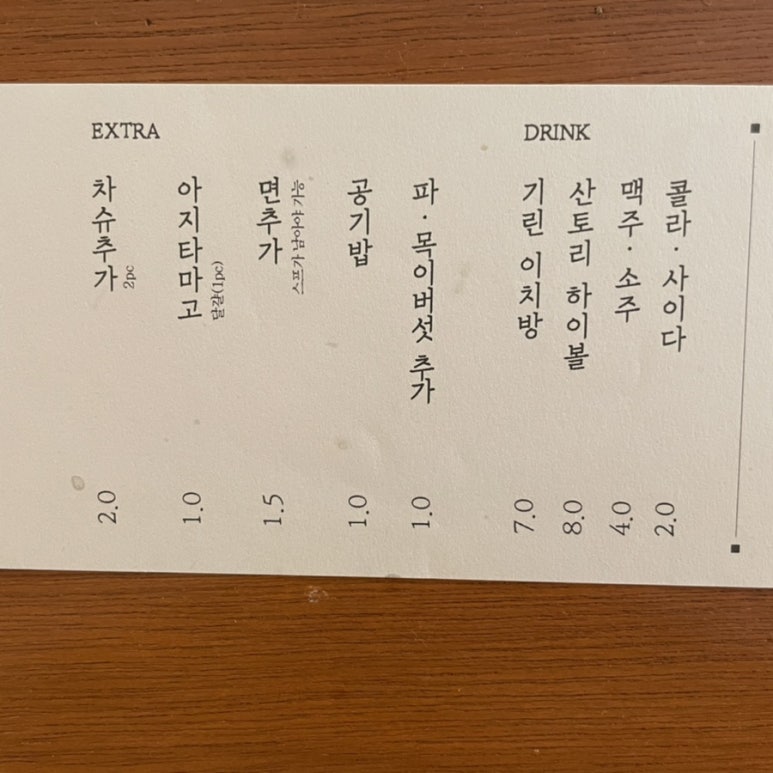 EXTRA
차슈추가 2pc 2.0
아지타마고 달걀(1pc) 1.0
면추가 스프가 남아야 가능 1.5
공기밥 1.0
파·목이버섯 추가 1.0
DRINK
기린 이치방 7.0
산토리 하이볼 8.0
맥주·소주 4.0
콜라·사이다 2.0